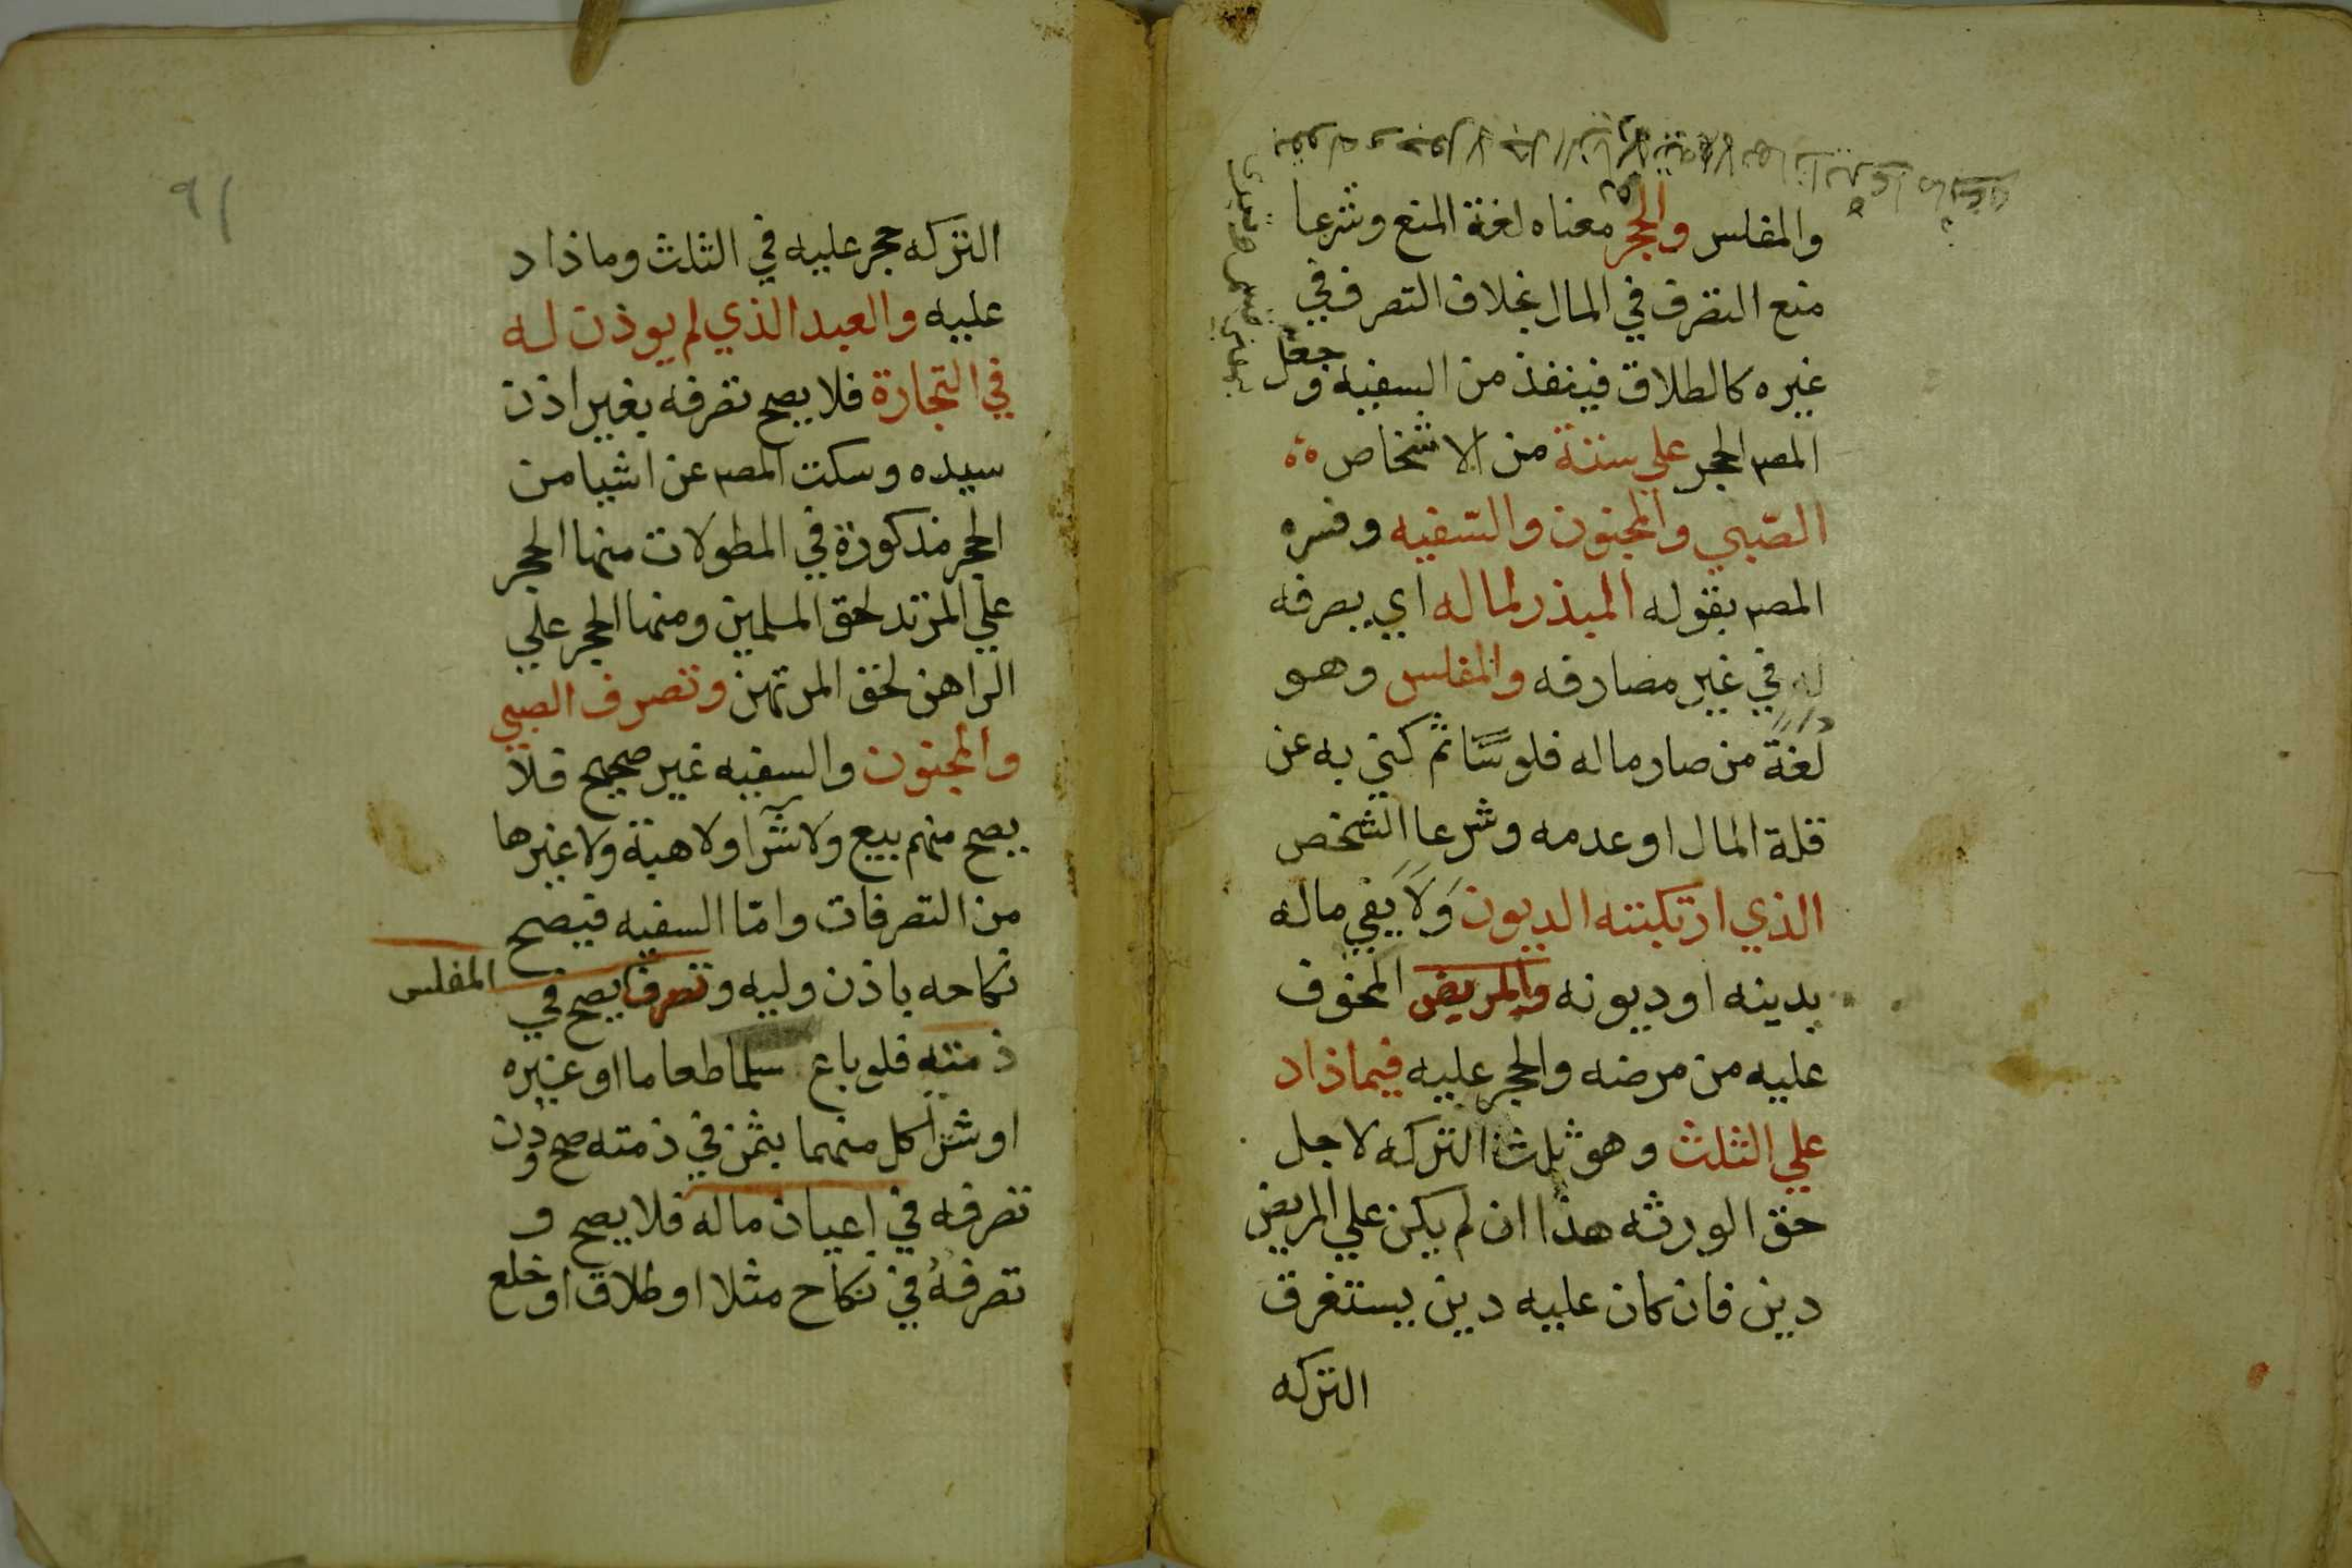 والمفلس والحجر معناه لغة المنع وشرعا
منع التصرف في المال بخلاف التصرف في
غيره كالطلاق فينفذ من السفيه وجعل
المص الحجر على ستة من الاشخاص
الصبي والمجنون والسفيه وفسره
المص بقوله المبذر لماله اي يصرفه
في غير مصارفه والمفلس وهو
لغة من صار ماله فلوسا ثم كني به عن
قلة المال او عدمه وشرعا الشخص
الذي ارتكبته الديون ولا يفي ماله
بدينه او ديونه والمريض المخوف
عليه من مرضه والحجر عليه فيما ذاد
علي الثلث وهو ثلث التركه لاجل
حق الورثه هذا ان لم يكن علي المريض
دين فان كان عليه دين يستغرق
التركه
٩١
التركه حجر عليه في الثلث وما ذاد
عليه والعبد الذي لم يوذن له
في التجارة فلا يصح تصرفه بغير اذن
سيده وسكت المص عن اشيا من
الحجر مذكورة في المطولات منها الحجر
علي المرتد لحق المسلمين ومنها الحجر علي
الراهن لحق المرتهن وتصرف الصبي
والمجنون والسفيه غير صحيح فلا
يصح منهم بيع ولا شرا ولا هبة ولا غيرها
من التصرفات واما السفيه فيصح
نكاحه باذن وليه وتصرف يصح في
المفلس
ذمته فلو باع سلما طعاما او غيره
او شرا كل منهما بثمن في ذمته صح دون
تصرفه في اعيان ماله فلا يصح و
تصرفه في نكاح مثلا او طلاق او خلع